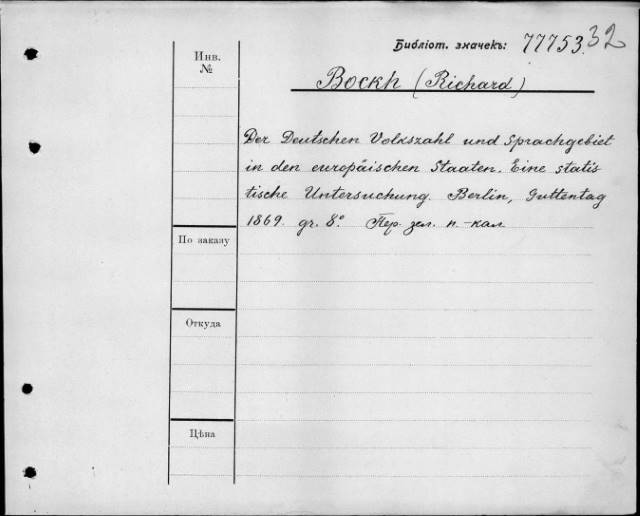 Библіот. значекъ: 77753.32
Инв.
№
Bockh (Richard)
Der Deutschen Volkszahl und Sprachgebiet
in den europäischen Staaten. Eine statis
tische Untersuchung. Berlin, Guttentag
1869. gr. 8° Пер. зел. п.-кал.
По заказу
Откуда
Цѣна